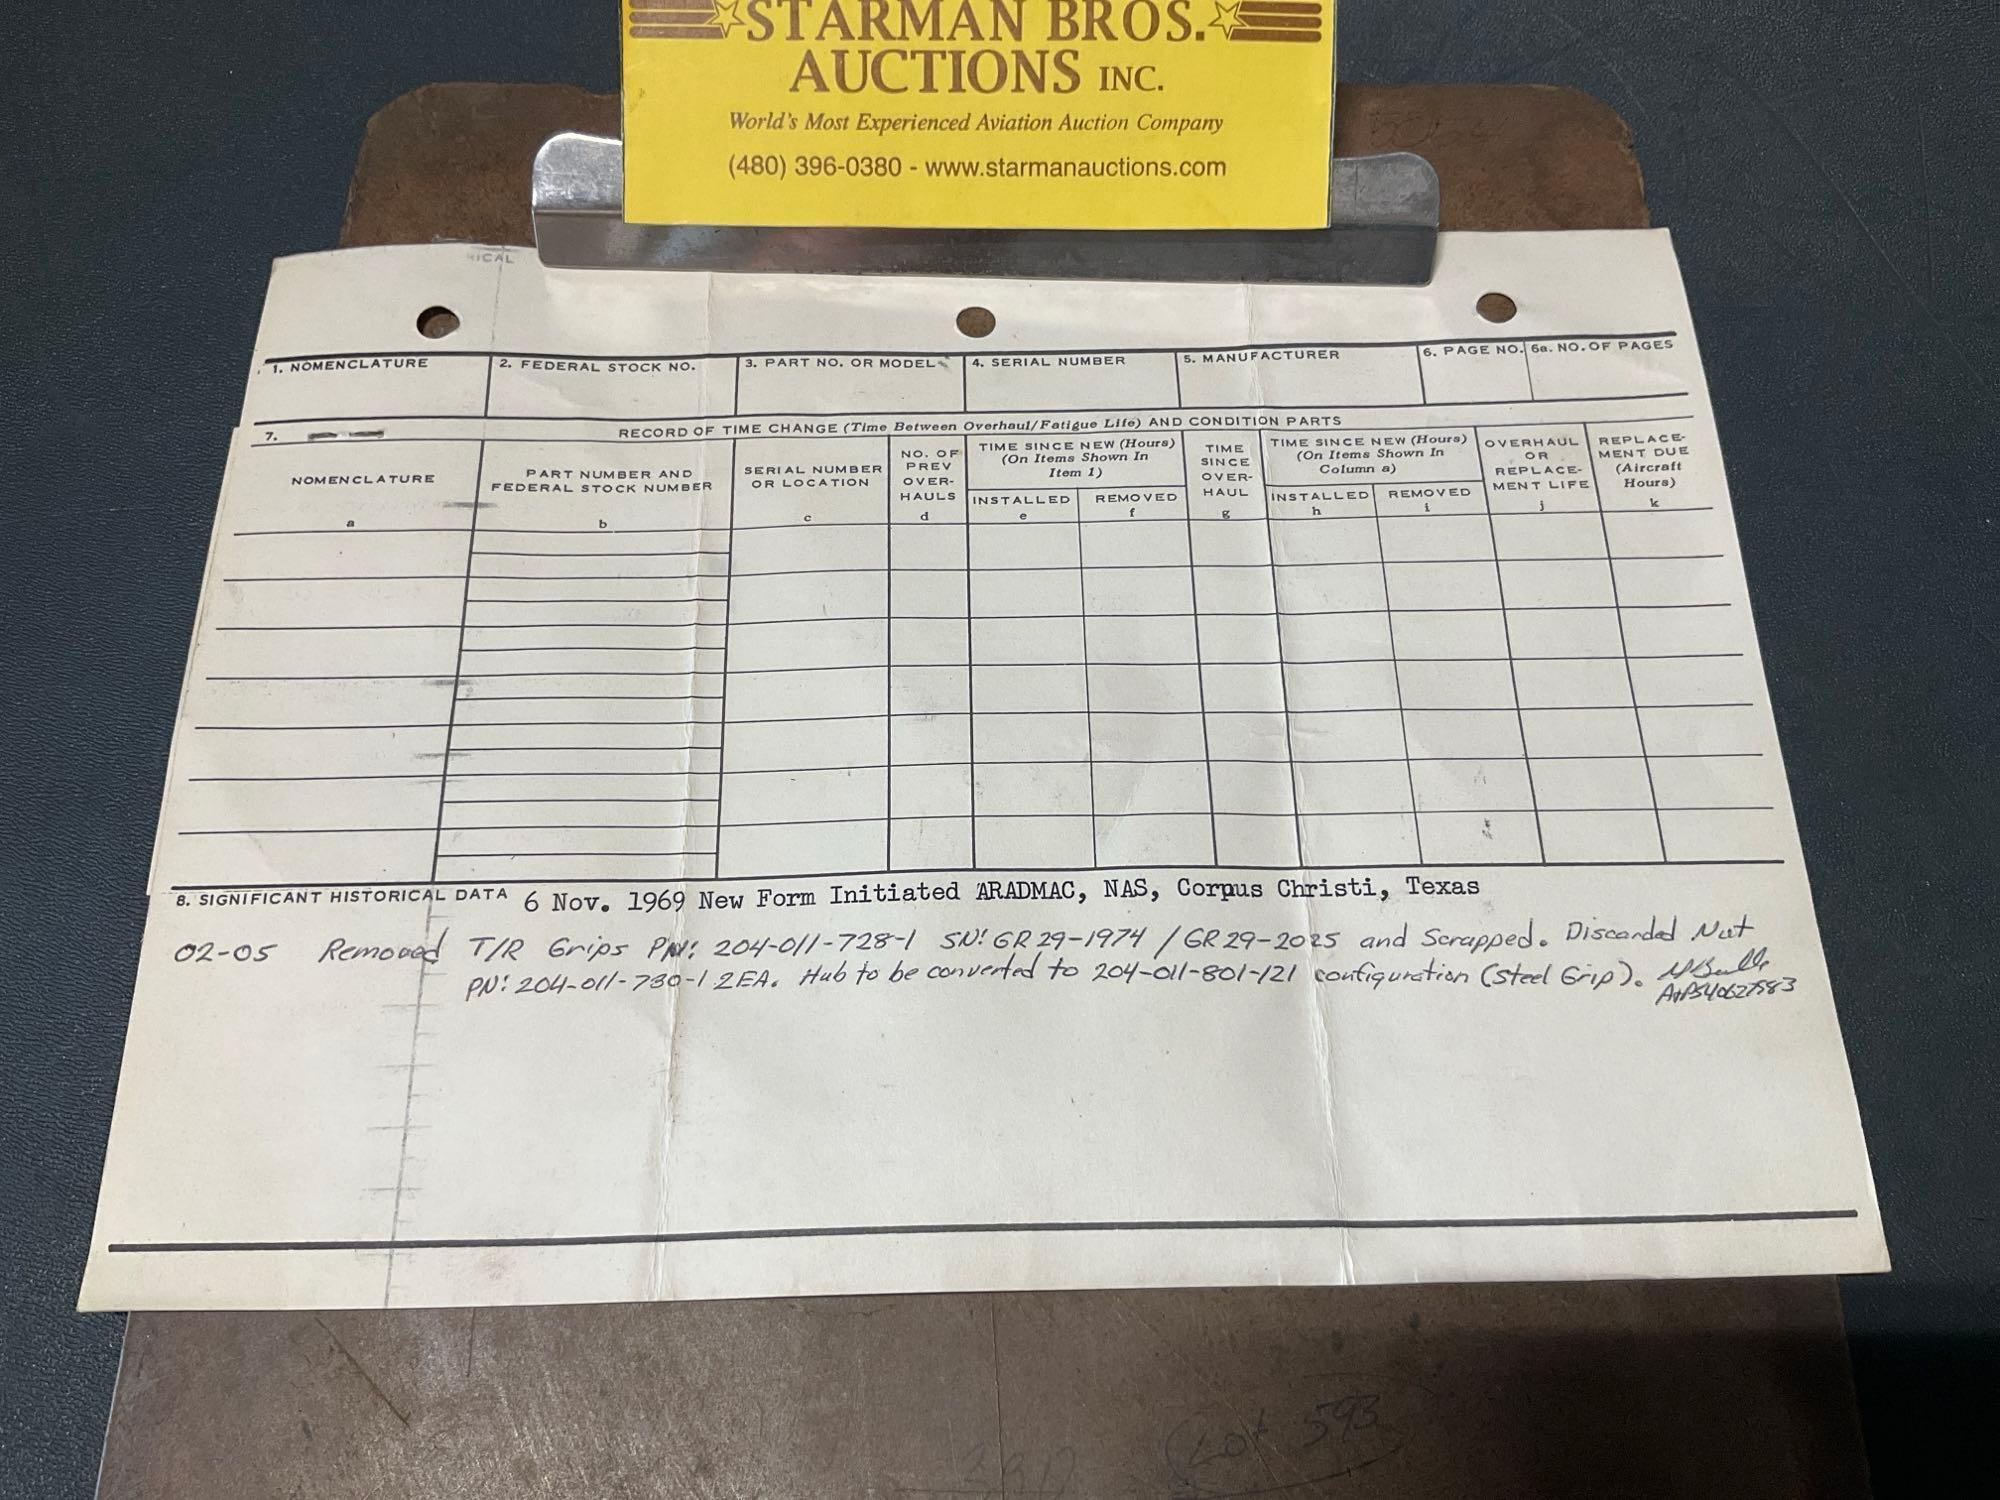 STARMAN BROS.
AUCTIONS INC.
World's Most Experienced Aviation Auction Company
(480) 396-0380 - www.starmanauctions.com
ICAL
1. NOMENCLATURE
2. FEDERAL STOCK NO.
3. PART NO. OR MODEL
4. SERIAL NUMBER
5. MANUFACTURER
6. PAGE NO.
6a. NO. OF PAGES
7.
RECORD OF TIME CHANGE (Time Between Overhaul/Fatigue Life) AND CONDITION PARTS
NOMENCLATURE
a
PART NUMBER AND
FEDERAL STOCK NUMBER
b
SERIAL NUMBER
OR LOCATION
c
NO. OF
PREV
OVER-
HAULS
d
TIME SINCE NEW (Hours)
(On Items Shown In
Item 1)
INSTALLED
e
REMOVED
f
TIME
SINCE
OVER-
HAUL
g
TIME SINCE NEW (Hours)
(On Items Shown In
Column a)
INSTALLED
h
REMOVED
i
OVERHAUL
OR
REPLACE-
MENT LIFE
j
REPLACE-
MENT DUE
(Aircraft
Hours)
k
8. SIGNIFICANT HISTORICAL DATA 6 Nov. 1969 New Form Initiated ARADMAC, NAS, Corpus Christi, Texas
02-05 Removed T/R Grips PN: 204-011-728-1 SN: GR29-1974 / GR29-2025 and Scrapped. Discarded Nut
PN: 204-011-730-1 2EA. Hub to be converted to 204-011-801-121 configuration (Steel Grip).
Lot 593